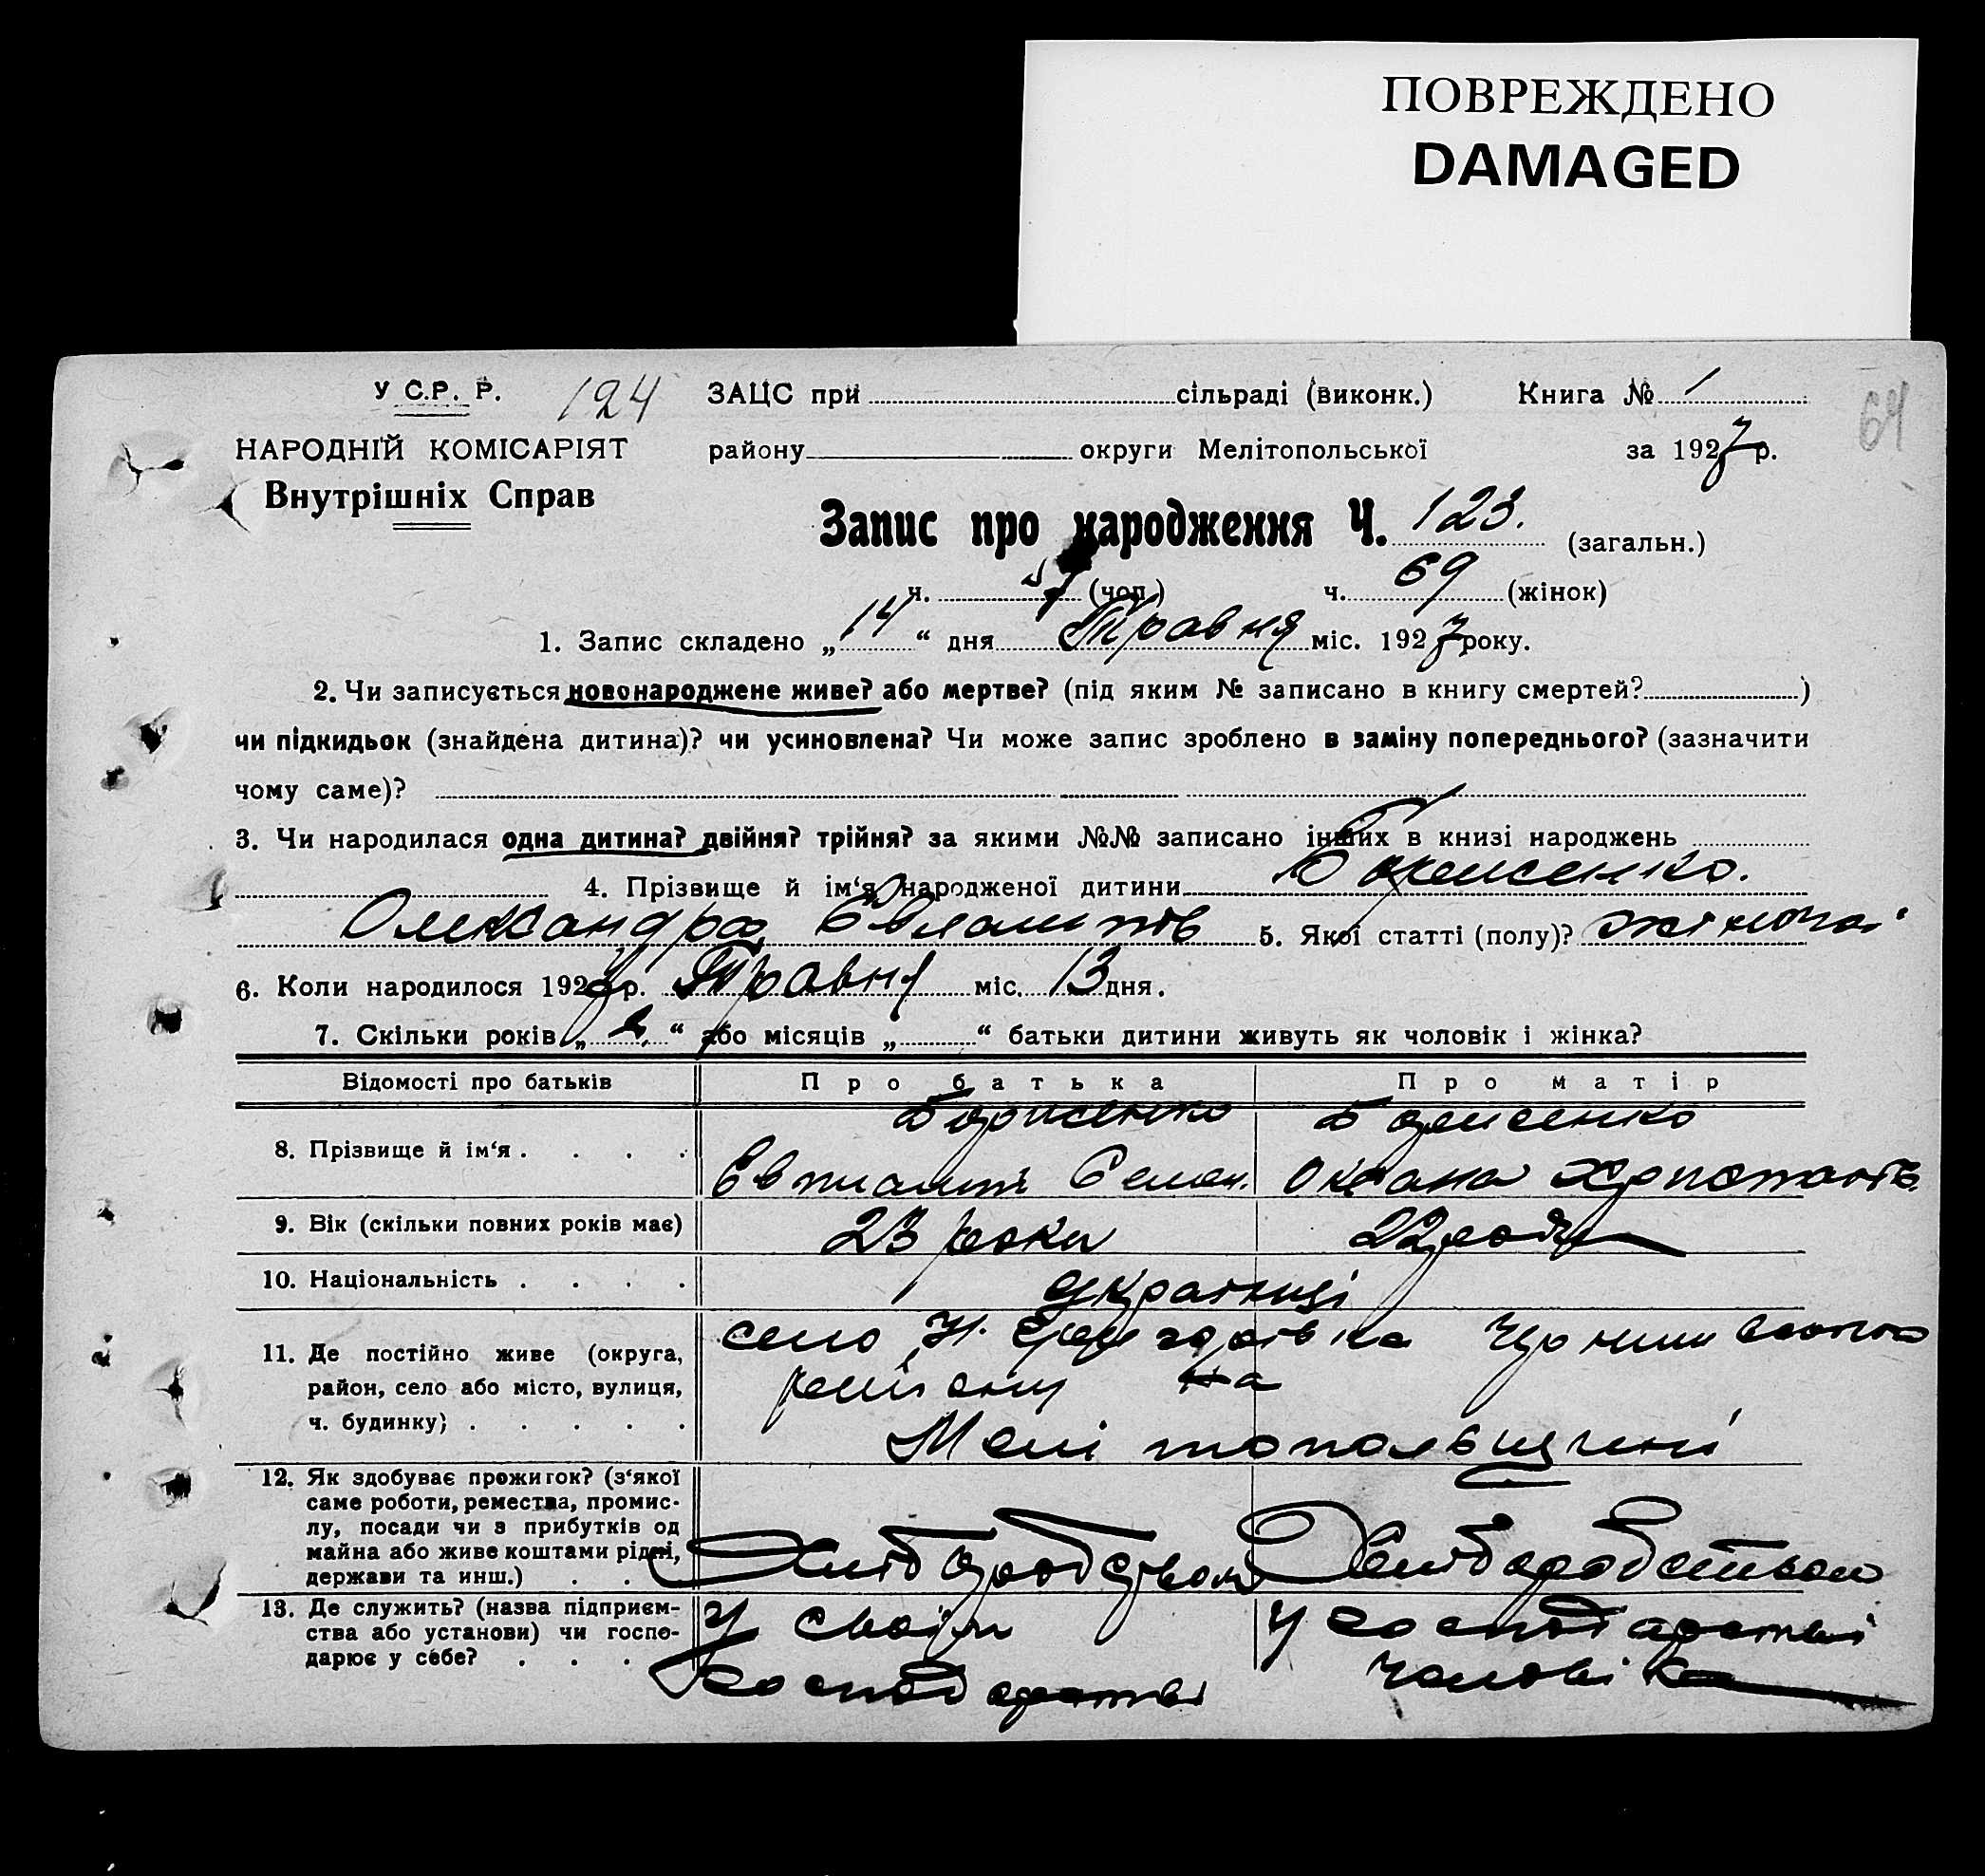 ПОВРЕЖДЕНО
DAMAGED
У С.Р. Р. 124 ЗАЦС при сільраді (виконк.) Книга № 1
64
НАРОДНІЙ КОМІСАРІЯТ району округи Мелітопольської за 1927 р.
Внутрішніх Справ
Запис про народження Ч. 123. (загальн.)
ч. (чол.) ч. 69 (жінок)
1. Запис складено „14“ дня Травня міс. 1927 року.
2. Чи записується новонароджене живе? або мертве? (під яким № записано в книгу смертей? )
чи підкидьок (знайдена дитина)? чи усиновлена? Чи може запис зроблено в заміну попереднього? (зазначити
чому саме)?
3. Чи народилася одна дитина? двійня? трійня? за якими №№ записано інших в книзі народжень
4. Прізвище й ім‘я народженої дитини Борисенко.
Олександра 5. Якої статті (полу)? жіночої
6. Коли народилося 1927 р. Травня міс. 13 дня.
7. Скільки років „ “ або місяців „ “ батьки дитини живуть як чоловік і жінка?
Відомості про батьків Про батька Про матір
Борисенко Борисенко
8. Прізвище й ім‘я . . . .
Семен. Оксана
9. Вік (скільки повних років має) 23 роки 22 роки
10. Національність . . . . українці
село Н. Чернигівського
11. Де постійно живе (округа,
район, село або місто, вулиця, району на
ч. будинку) . . . . . Мелітопольщині
12. Як здобуває прожиток? (з‘якої
саме роботи, ремества, промис-
лу, посади чи з прибутків од
майна або живе коштами рідні, Хліборобством Хліборобством
держави та инш.) . .
13. Де служить? (назва підприєм- У своїм У господарстві
ства або установи) чи госпо-
дарює у себе? . . . господарстві чоловіка